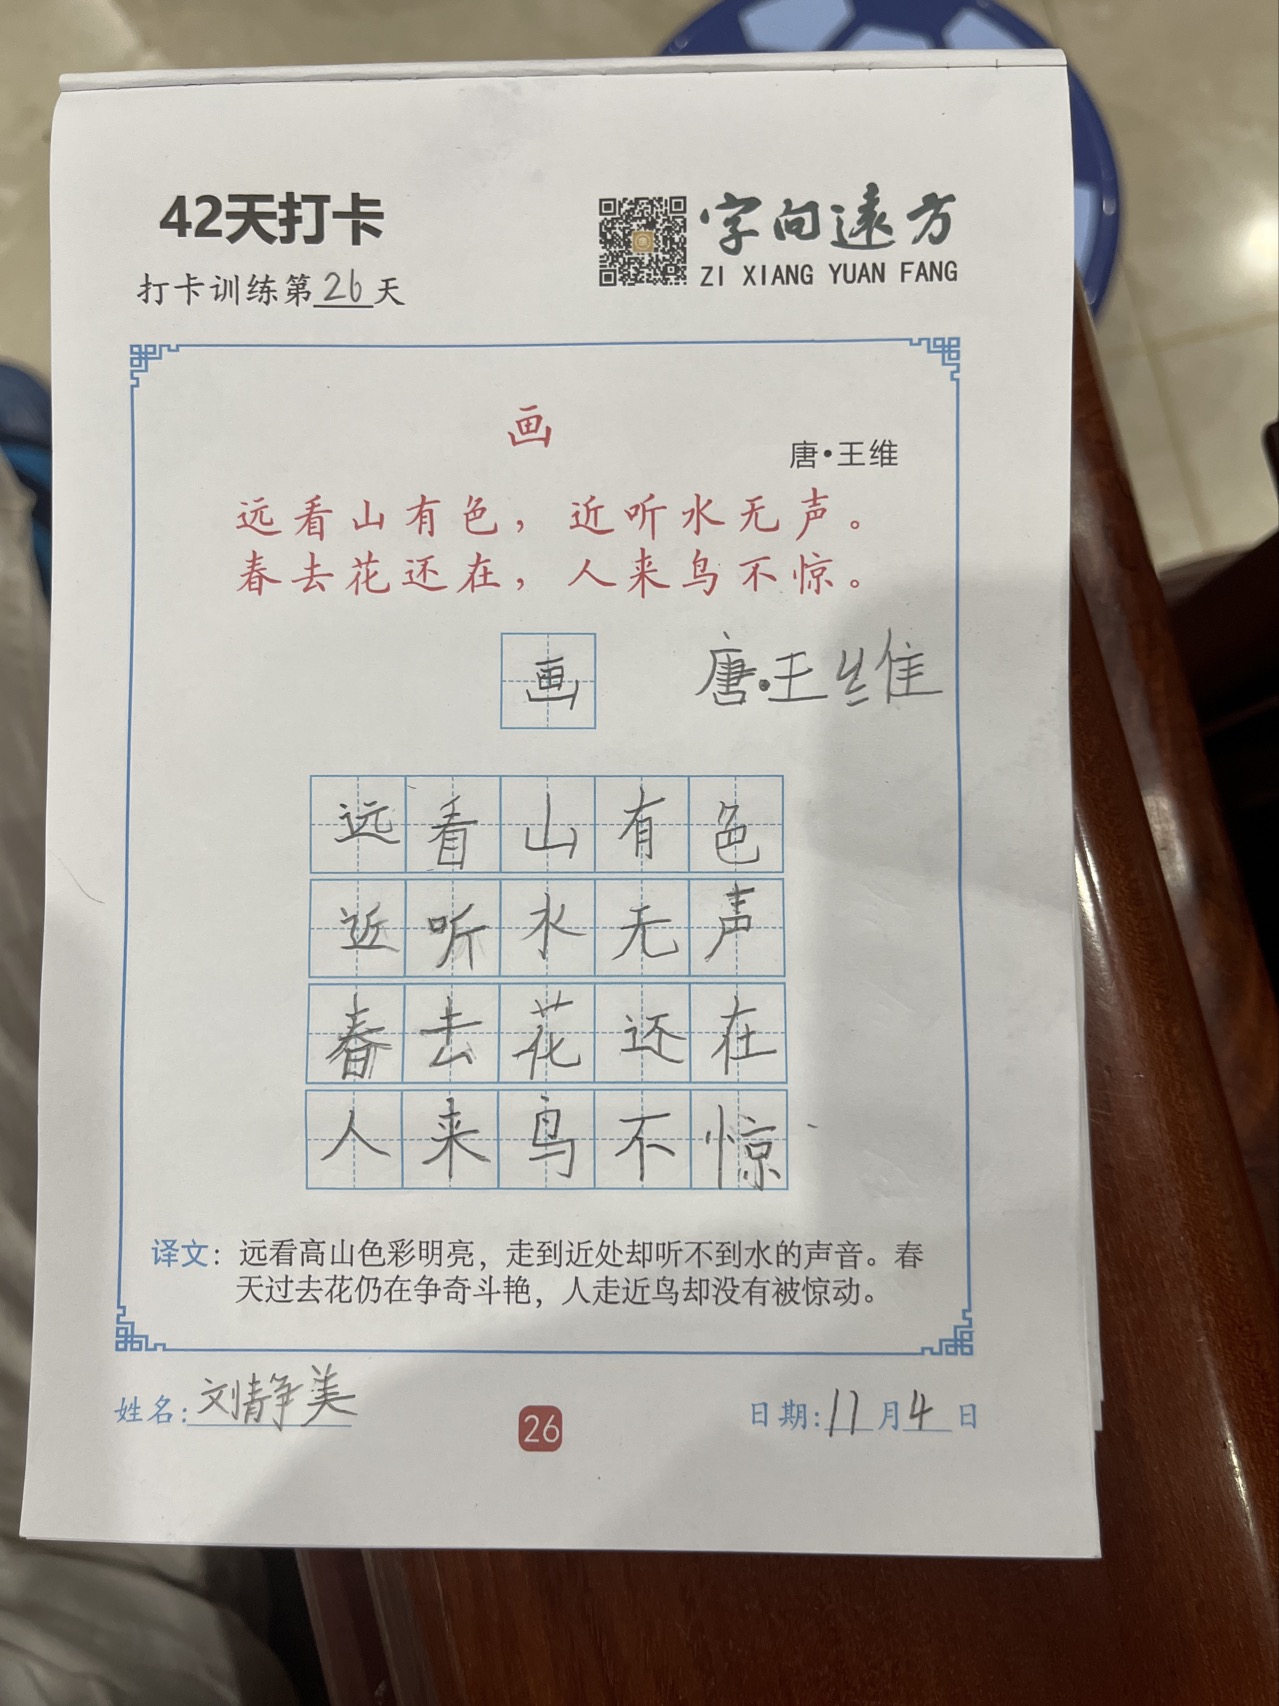 42天打卡
字向远方
ZI XIANG YUAN FANG
打卡训练第26天
画
唐·王维
远看山有色，近听水无声。
春去花还在，人来鸟不惊。
画 唐·王维
远看山有色
近听水无声
春去花还在
人来鸟不惊
译文：远看高山色彩明亮，走到近处却听不到水的声音。春
天过去花仍在争奇斗艳，人走近鸟却没有被惊动。
姓名:刘静美
26
日期:11月4日